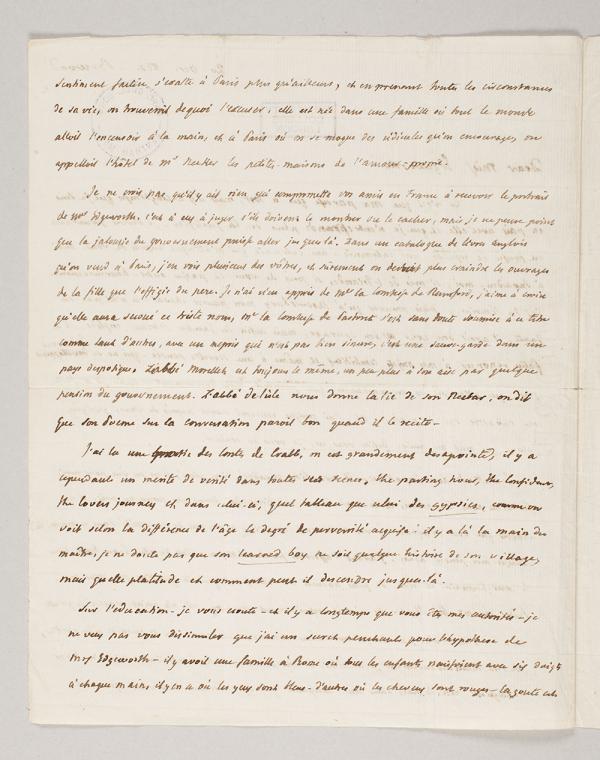 sentiment factice, s'exalte à Paris plus qu'ailleurs, et en prenant toutes les circonstances
de sa vie, on trouveroit de quoi l'excuser, elle est née dans une famille où tout le monde
alloit l'encensoir à la main, et à Paris où on se moque des ridicules qu'on encourage, on
appelloit l'hôtel de Mr Necker les petites-maisons de l'amour-propre.
Je ne crois pas qu'il y ait rien qui compromette vos amis en France à recevoir le portrait
de Mr Edgeworth. c'est à eux à juger s'ils doivent le montrer ou le cacher, mais je ne pense point
que la jalousie du gouvernement puisse aller jusques là. Dans un catalogue de livres anglois
qu'on vend à Paris, j'en vois plusieurs des vôtres, et surement on devroit plus craindre les ouvrages
de la fille que l'effigie du pere. Je n'ai rien appris de Me la Comtesse de Rumford, j'aime à croire
qu'elle aura secoué ce triste nom, Me la Comtesse de Pastoret s'est sans doute soumise à ce titre
comme tant d'autres, avec un mepris qui n'est pas bien sincere, c'est une sauve-garde dans un
pays despotique. L'abbé Morellet est toujours le même, un peu plus à son aise par quelque
pension du gouvernement. L'abbé de lisle nous donne la lie de son Nectar, on dit
que son Poeme sur la conversation paroit bon quand il le recite -
J'ai lu une partie des Contes de Crabb, on est grandement desapointé, il y a
cependant un merite de verité dans toutes ses scenes, the parting hour, the Confidant,
the lovers journey et dans celui-ci, quel tableau que celui des gypsies, comme on
voit selon la différence de l'âge le degré de perversité acquise! il y a là la main du
maître. je ne doute pas que son learned boy ne soit quelque histoire de son village,
mais quelle platitude et comment peut il descendre jusques-là.
Sur l'education - je vous ecoute - et il y a longtemps que vous êtes mes autorités - je
ne veux pas vous dissimuler que j'ai un penchant pour l'hypothese de
Mrs Edgeworth - il y avoit une famille à Rome où tous les enfants naissoient avec six doigts
à chaque main, il y en a où les yeux sont bleus - d'autres où les cheveux sont rouges - la goute est